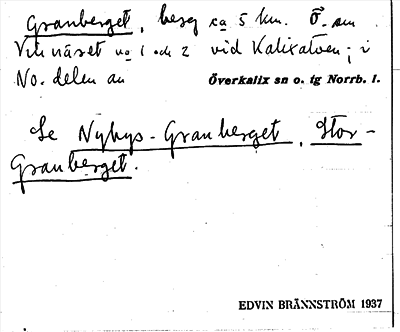 Granberget, berg ca 5 km. Ö. om
Vitnäset no 1 och 2 vid Kalixälven; i
No. delen av Överkalix sn o. tg Norrb. l.
Se Nybys-Granberget, Stor-
Granberget.
EDVIN BRÄNNSTRÖM 1937